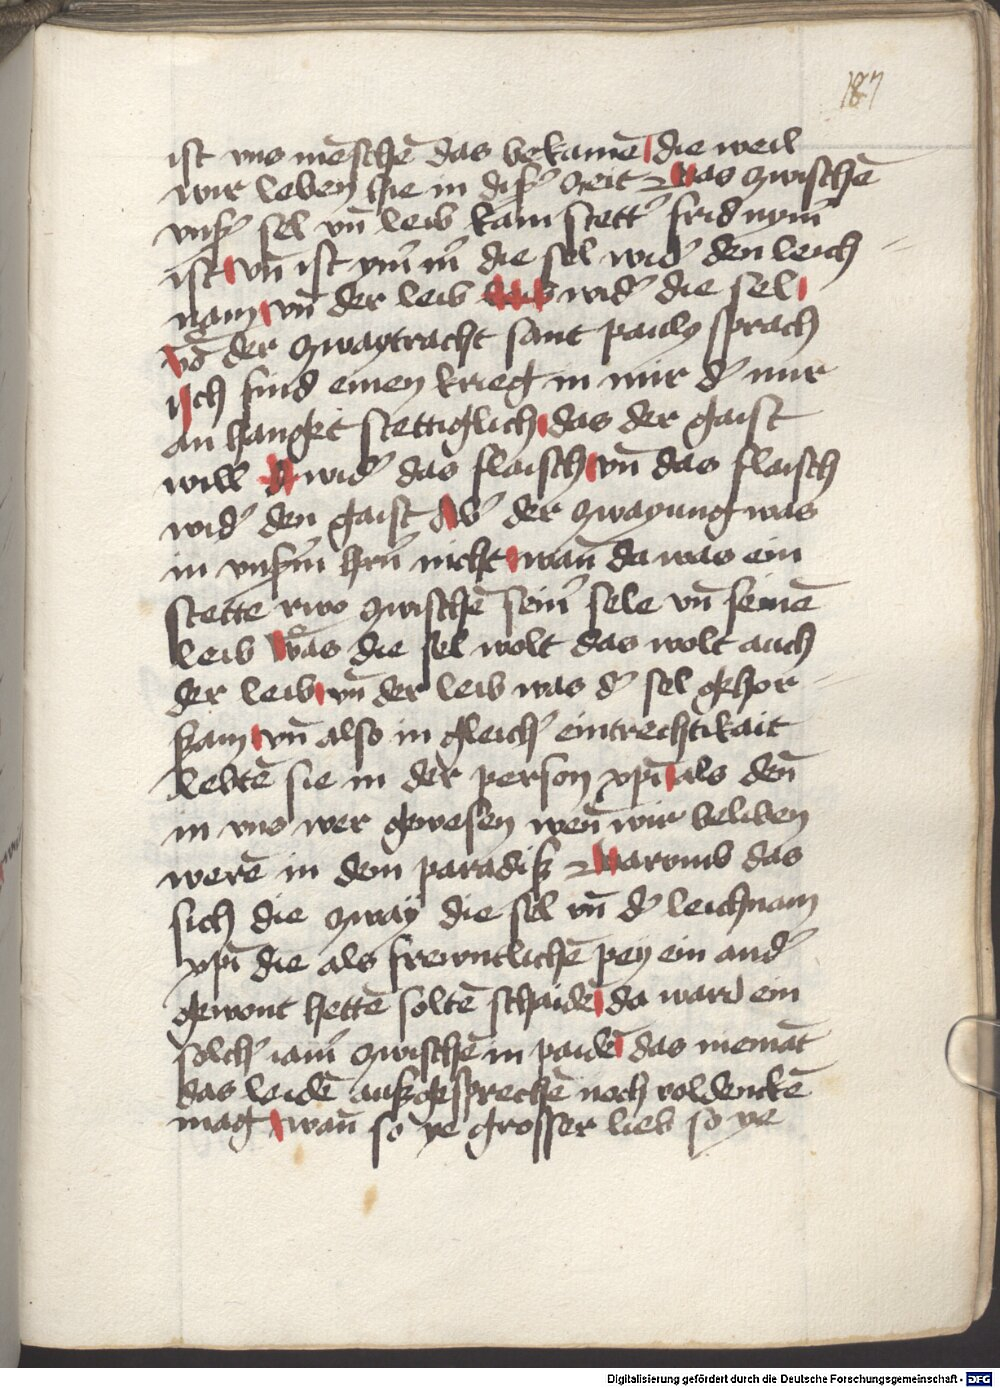 187
ist vns mēschē das bekamē die weil
wir leben hie in disʼ zeit Das zwischē
vnsʼ sel vn̄ leib kain stettʼ frid nymʼ
ist vn̄ ist ymʼ mʼ die sel widʼ den leich
nam vn̄ der leib leib widʼ die sel
vō der zwaytracht sant pauls sprach
Jch find einen krieg in mir dʼ mir
an hanget stettiglich das der gaist
will widʼ das flaisch vn̄ das flaisch
widʼ den gaist Abʼ der zwayung was
in vnsʼm hʼrn nicht wan̄ da was ein
stette rwo zwischē seinʼ sele vn̄ seinē
leib Was die sel wolt das wolt auch
der leib vn̄ der leib was dʼ sel gehor
sam vn̄ also in gleichʼ eintrechtikait
lebtē sie in der person xp̄i als den̄
in vns wer gewesen wen̄ wir beliben
werē in dem paradiß Warvmb das
sich die zway die sel vn̄ dʼ leichnam
xp̄i die als frewntlichē pey ein andʼ
gewont hettē soltē schaidē da ward ein
solchʼ iamʼ zwischē in paidē das niemāt
das leidē außgesprechē noch voldenckē
mag wan̄ so ye grosser lieb so ye
Digitalisierung gefördert durch die Deutsche Forschungsgemeinschaft - DFG